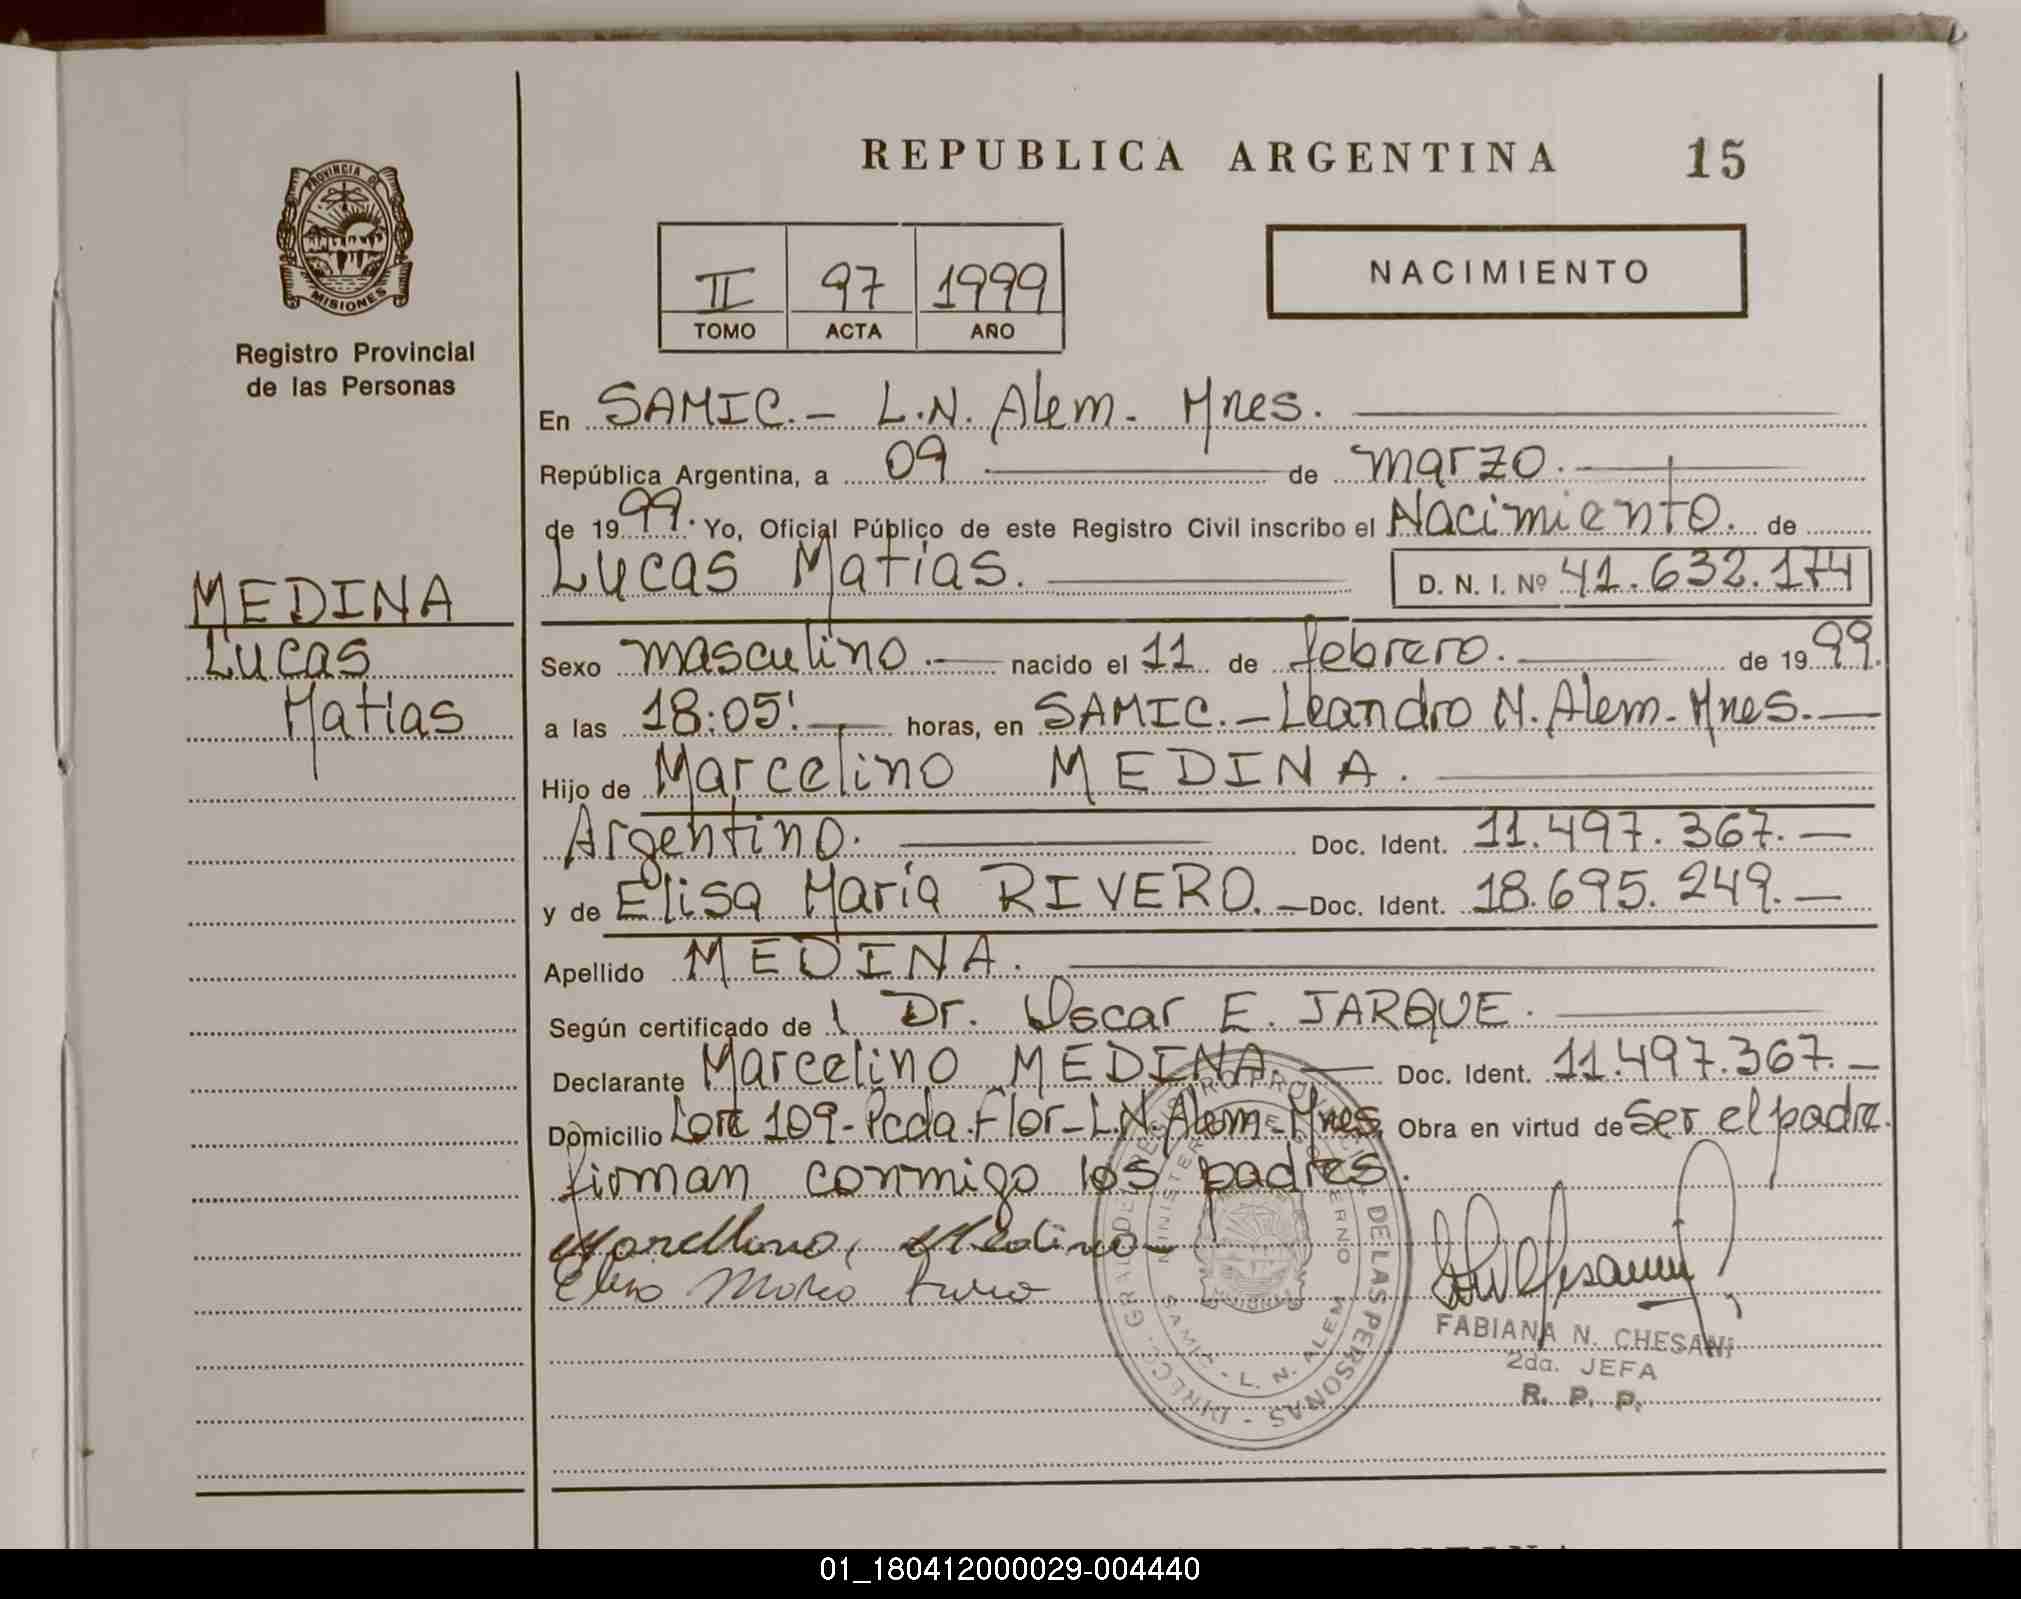 REPUBLICA ARGENTINA 15
PROVINCIA DE
MISIONES
Registro Provincial
de las Personas
II 97 1999
TOMO ACTA AÑO
NACIMIENTO
En SAMIC.- L.N. Alem. Mnes.
República Argentina, a 09 de marzo.
de 1999. Yo, Oficial Público de este Registro Civil inscribo el Nacimiento. de
Lucas Matías. D. N. I. Nº 41.632.174
MEDINA
Lucas
Matias
Sexo masculino.- nacido el 11 de febrero. de 1999.
a las 18:05'. horas, en SAMIC.- Leandro N. Alem. Mnes.-
Hijo de Marcelino MEDINA.
Argentino. Doc. Ident. 11.497.367.-
y de Elisa María RIVERO.- Doc. Ident. 18.695.249.-
Apellido MEDINA.
Según certificado de Dr. Oscar E. JARQUE.
Declarante Marcelino MEDINA.- Doc. Ident. 11.497.367.-
Domicilio Lote 109-Pcda.Flor-L.N.Alem-Mnes. Obra en virtud de Ser el padre.
firman conmigo los padres.
Marcelino, Medina
Elisa Maria
DIRECC. GRAL. DEL REGISTRO PROVINCIAL DE LAS PERSONAS -
MINISTERIO DE GOBIERNO
MISIONES
SAMIC - L. N. ALEM
FABIANA N. CHESANI
2da. JEFA
R. P. P.
01_180412000029-004440